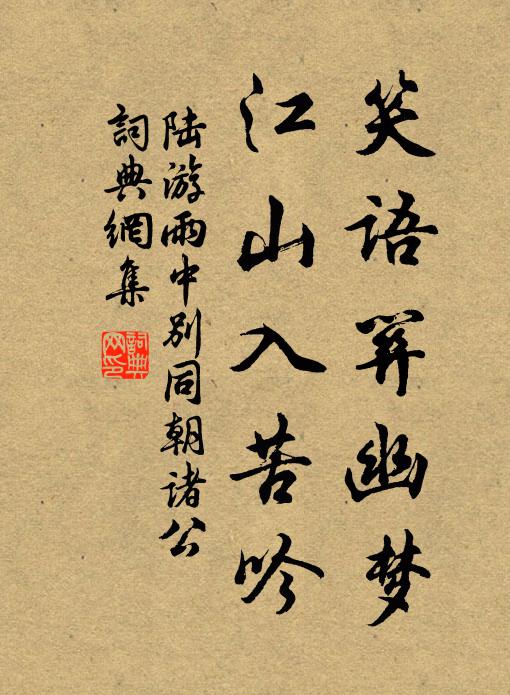 笑語関幽梦
江山入苦吟
陆游雨中别同朝诸公
詞典網集
詞典网印